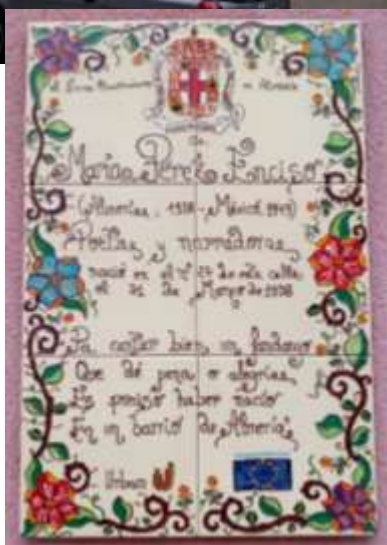 de
María Pérez Enciso
(Almería, 1908 - México, 1949)
Poetisa y narradora,
nació en el nº 27 de esta calle
el 31 de Marzo de 1908
Pa cantar bien un fandango
Que dé pena o alegrías
Es preciso haber nacío
En un barrio de Almería
Urban